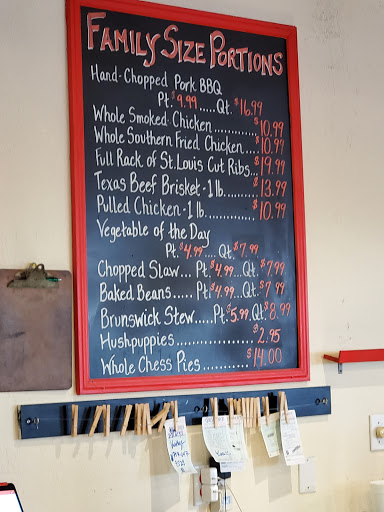 FAMILY SIZE PORTIONS
Hand-Chopped Pork BBQ
Pt. $9.99.....Qt. $16.99
Whole Smoked Chicken............$10.99
Whole Southern Fried Chicken....$10.99
Full Rack of St. Louis Cut Ribs...$19.99
Texas Beef Brisket-1 lb..........$13.99
Pulled Chicken-1 lb..............$10.99
Vegetable of the Day
Pt. $4.99...Qt. $7.99
Chopped Slaw... Pt. $4.99...Qt. $7.99
Baked Beans..... Pt. $4.99...Qt. $7.99
Brunswick Stew.....Pt. $5.99.Qt. $8.99
Hushpuppies..................$2.95
Whole Chess Pies............$14.00